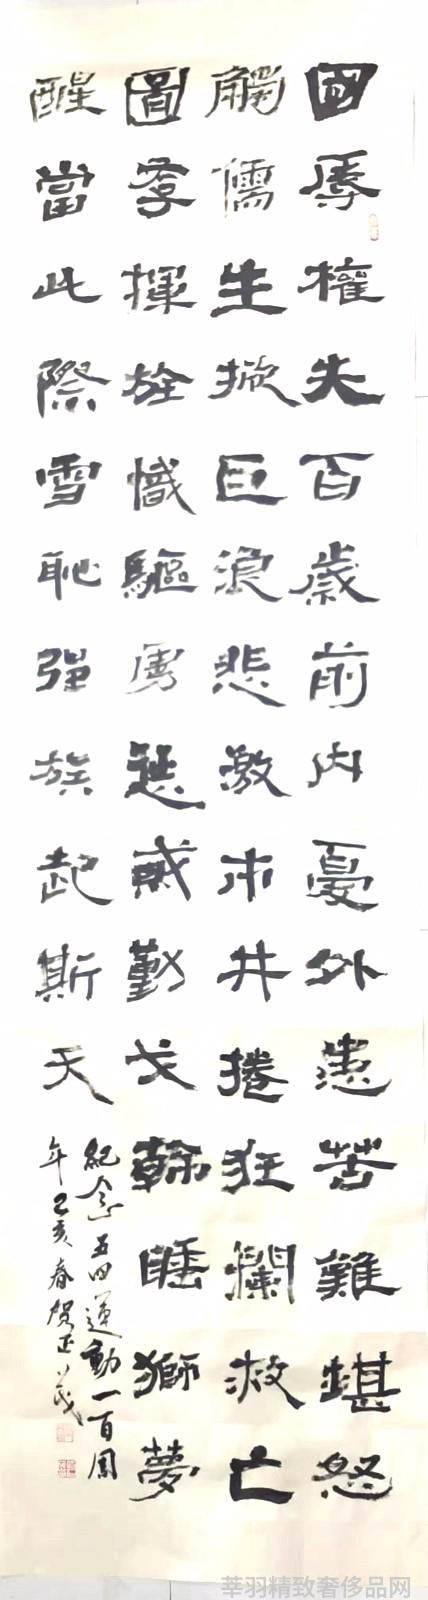 國辱權失百歲前内憂外患苦難堪怒
觸儒生掀巨浪悲激市井捲狂瀾救亡
圖存揮旌幟驅虜懲戒勤戈幹睡獅夢
醒當此際雪恥强族起斯天
紀念五四運動一百周
年己亥春賀正茂
莘羽精致奢侈品网